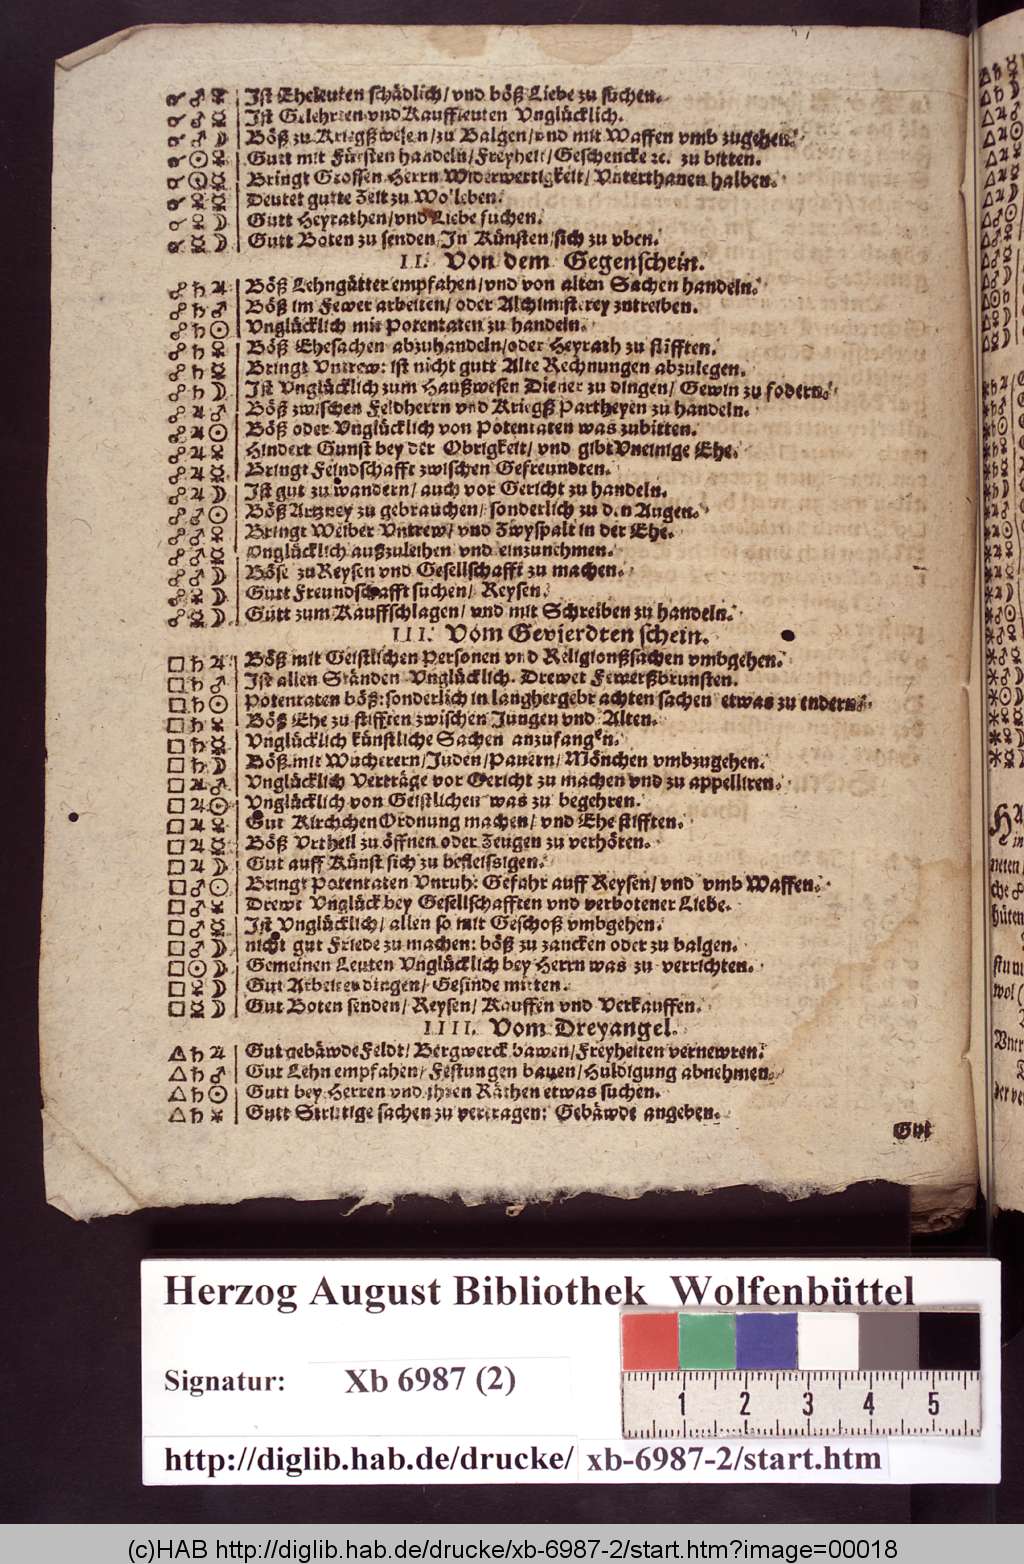 ☌ ♂ ♀ Ist Eheleuten schädlich/ vnd böß Liebe zu suchen.
☌ ♂ ☿ Ist Gelehrten vnd Kauffleuten Vnglücklich.
☌ ♂ ☽ Böß zu Kriegßwesen/ zu Balgen/ vnd mit Waffen vmb zugehen.
☌ ☉ ♀ Gutt mit Fürsten handeln/ Freyheit/ Geschencke ꝛc. zu bitten.
☌ ☉ ☿ Bringt Grossen Herrn Widerwertigkeit/ Vnterthanen halben.
☌ ♀ ☿ Deutet gutte Zeit zu Wolleben.
☌ ♀ ☽ Gutt Heyrathen/ vnd Liebe suchen.
☌ ☿ ☽ Gutt Boten zu senden/ In Künsten/ sich zu vben.
II. Von dem Gegenschein.
☍ ♄ ♃ Böß Lehngütter empfahen/ vnd von alten Sachen handeln.
☍ ♄ ♂ Böß im Fewer arbeiten/ oder Alchimisterey zutreiben.
☍ ♄ ☉ Vnglücklich mit Potentaten zu handeln.
☍ ♄ ♀ Böß Ehesachen abzuhandeln/ oder Heyrath zu stifften.
☍ ♄ ☿ Bringt Vntrew: ist nicht gutt Alte Rechnungen abzulegen.
☍ ♄ ☽ Ist Vnglücklich zum Haußwesen Diener zu dingen/ Gewin zu fodern.
☍ ♃ ♂ Böß zwischen Feldherrn vnd Kriegß Partheyen zu handeln.
☍ ♃ ☉ Böß oder Vnglücklich von Potentaten was zubitten.
☍ ♃ ♀ Hindert Gunst bey der Obrigkeit/ vnd gibt Vneinige Ehe.
☍ ♃ ☿ Bringt Feindschafft zwischen Gefreundten.
☍ ♃ ☽ Ist gut zu wandern/ auch vor Gericht zu handeln.
☍ ♂ ☉ Böß Artzney zu gebrauchen/ sonderlich zu den Augen.
☍ ♂ ♀ Bringt Weiber Vntrew/ vnd Zwyspalt in der Ehe.
☍ ♂ ☿ Vnglücklich außzuleihen vnd einzunehmen.
☍ ♂ ☽ Böse zu Reysen vnd Gesellschafft zu machen.
☍ ♀ ☽ Gutt Freundschafft suchen/ Reysen.
☍ ☿ ☽ Gutt zum Kauffschlagen/ vnd mit Schreiben zu handeln.
III. Vom Gevierdten schein.
□ ♄ ♃ Böß mit Geistlichen Personen vnd Religionßsachen vmbgehen.
□ ♄ ♂ Ist allen Ständen Vnglücklich. Drewet Fewerßbrunsten.
□ ♄ ☉ Potentaten böß: sonderlich in langhergebrachten sachen etwas zu endern.
□ ♄ ♀ Böß Ehe zu stifften zwischen Jungen vnd Alten.
□ ♄ ☿ Vnglücklich künstliche Sachen anzufangen.
□ ♄ ☽ Böß mit Wucherern/ Juden/ Pauern/ Mönchen vmbzugehen.
□ ♃ ♂ Vnglücklich Verträge vor Gericht zu machen vnd zu appelliren.
□ ♃ ☉ Vnglücklich von Geistlichen was zu begehren.
□ ♃ ♀ Gut Kirchchen Ordnung machen/ vnd Ehe stifften.
□ ♃ ☿ Böß Vrtheil zu öffnen oder Zeugen zu verhören.
□ ♃ ☽ Gut auff Künst sich zu befleissigen.
□ ♂ ☉ Bringt Potentaten Vnruh: Gefahr auff Reysen/ vnd vmb Waffen.
□ ♂ ♀ Drewt Vnglück bey Gesellschafften vnd verbotener Liebe.
□ ♂ ☿ Ist Vnglücklich/ allen so mit Geschoß vmbgehen.
□ ♂ ☽ nicht gut Friede zu machen: böß zu zancken oder zu balgen.
□ ☉ ☽ Gemeinen Leuten Vnglücklich bey Herrn was zu verrichten.
□ ♀ ☽ Gut Arbeiter dingen/ Gesinde mitten.
□ ☿ ☽ Gut Boten senden/ Reysen/ Kauffen vnd Verkauffen.
IIII. Vom Dreyangel.
△ ♄ ♃ Gut gebäwde Feldt/ Bergwerck bawen/ Freyheiten vernewren.
△ ♄ ♂ Gut Lehn empfahen/ Festungen bauen/ Huldigung abnehmen.
△ ♄ ☉ Gutt bey Herren vnd ihren Räthen etwas suchen.
△ ♄ ♀ Gutt Strittige sachen zu vertragen: Gebäwde angeben.
Gut
Herzog August Bibliothek Wolfenbüttel
Signatur: Xb 6987 (2)
1 2 3 4 5
http://diglib.hab.de/drucke/ xb-6987-2/start.htm
(c)HAB http://diglib.hab.de/drucke/xb-6987-2/start.htm?image=00018